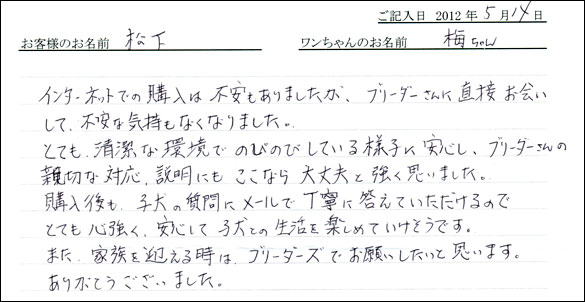 ご記入日 2012 年 5 月 14 日
お客様のお名前 松下 ワンちゃんのお名前 梅ちゃん
インターネットでの購入は不安もありましたが、ブリーダーさんに直接お会い
して、不安な気持もなくなりました。
とても、清潔な環境でのびのびしている様子に安心し、ブリーダーさんの
親切な対応、説明にもここなら大丈夫と強く思いました。
購入後も、子犬の質問にメールで丁寧に答えていただけるので
とても心強く、安心して子犬との生活を楽しめていけそうです。
また、家族を迎える時は、ブリーダーズでお願いしたいと思います。
ありがとうございました。